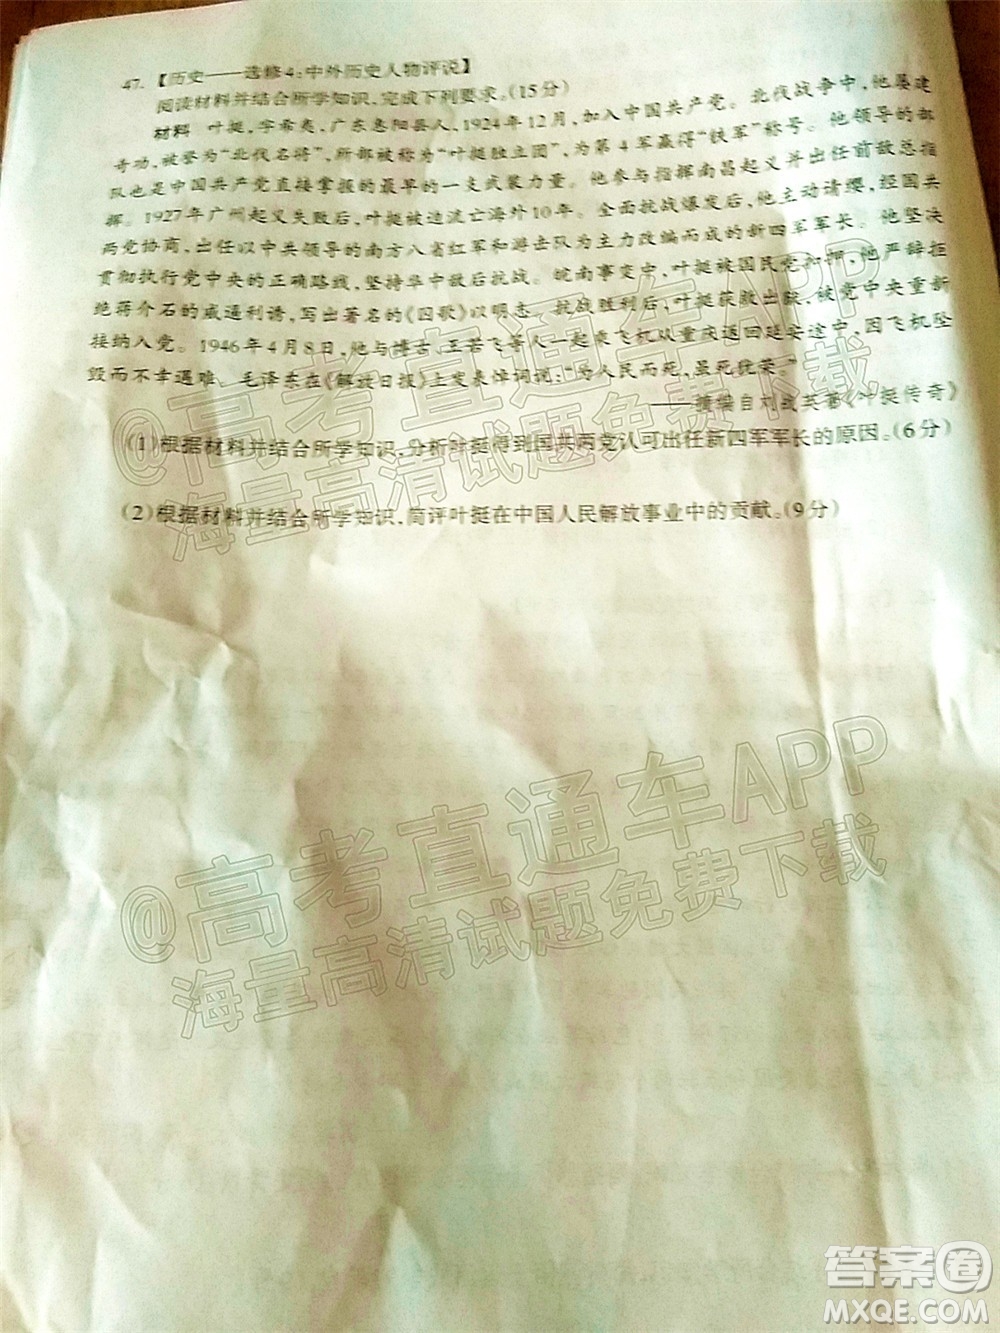 47. 【历史——选修4:中外历史人物评说】
阅读材料并结合所学知识,完成下列要求。(15分)
材料 叶挺,字希夷,广东惠阳县人,1924年12月,加入中国共产党。北伐战争中,他屡建
奇功,被誉为“北伐名将”,所部被称为“叶挺独立团”,为第4军赢得“铁军”称号。他领导的部
队也是中国共产党直接掌握的最早的一支武装力量。他参与指挥南昌起义并出任前敌总指
挥。1927年广州起义失败后,叶挺被迫流亡海外10年。全面抗战爆发后,他主动请缨,经国共
两党协商,出任以中共领导的南方八省红军和游击队为主力改编而成的新四军军长。他坚决
贯彻执行党中央的正确路线,坚持华中敌后抗战。皖南事变中,叶挺被国民党扣押,他严辞拒
绝蒋介石的威逼利诱,写出著名的《囚歌》以明志。抗战胜利后,叶挺获救出狱,被党中央重新
接纳入党。1946年4月8日,他与博古、王若飞等人一起乘飞机从重庆返回延安途中,因飞机坠
毁而不幸遇难。毛泽东在《解放日报》上发表悼词说:“为人民而死,虽死犹荣。”
——摘编自刘战英著《叶挺传奇》
(1)根据材料并结合所学知识,分析叶挺得到国共两党认可出任新四军军长的原因。(6分)
(2)根据材料并结合所学知识,简评叶挺在中国人民解放事业中的贡献。(9分)
@高考直通车APP
海量高清试题免费下载
@高考直通车APP
海量高清试题免费下载
答案圈
MXQE.COM